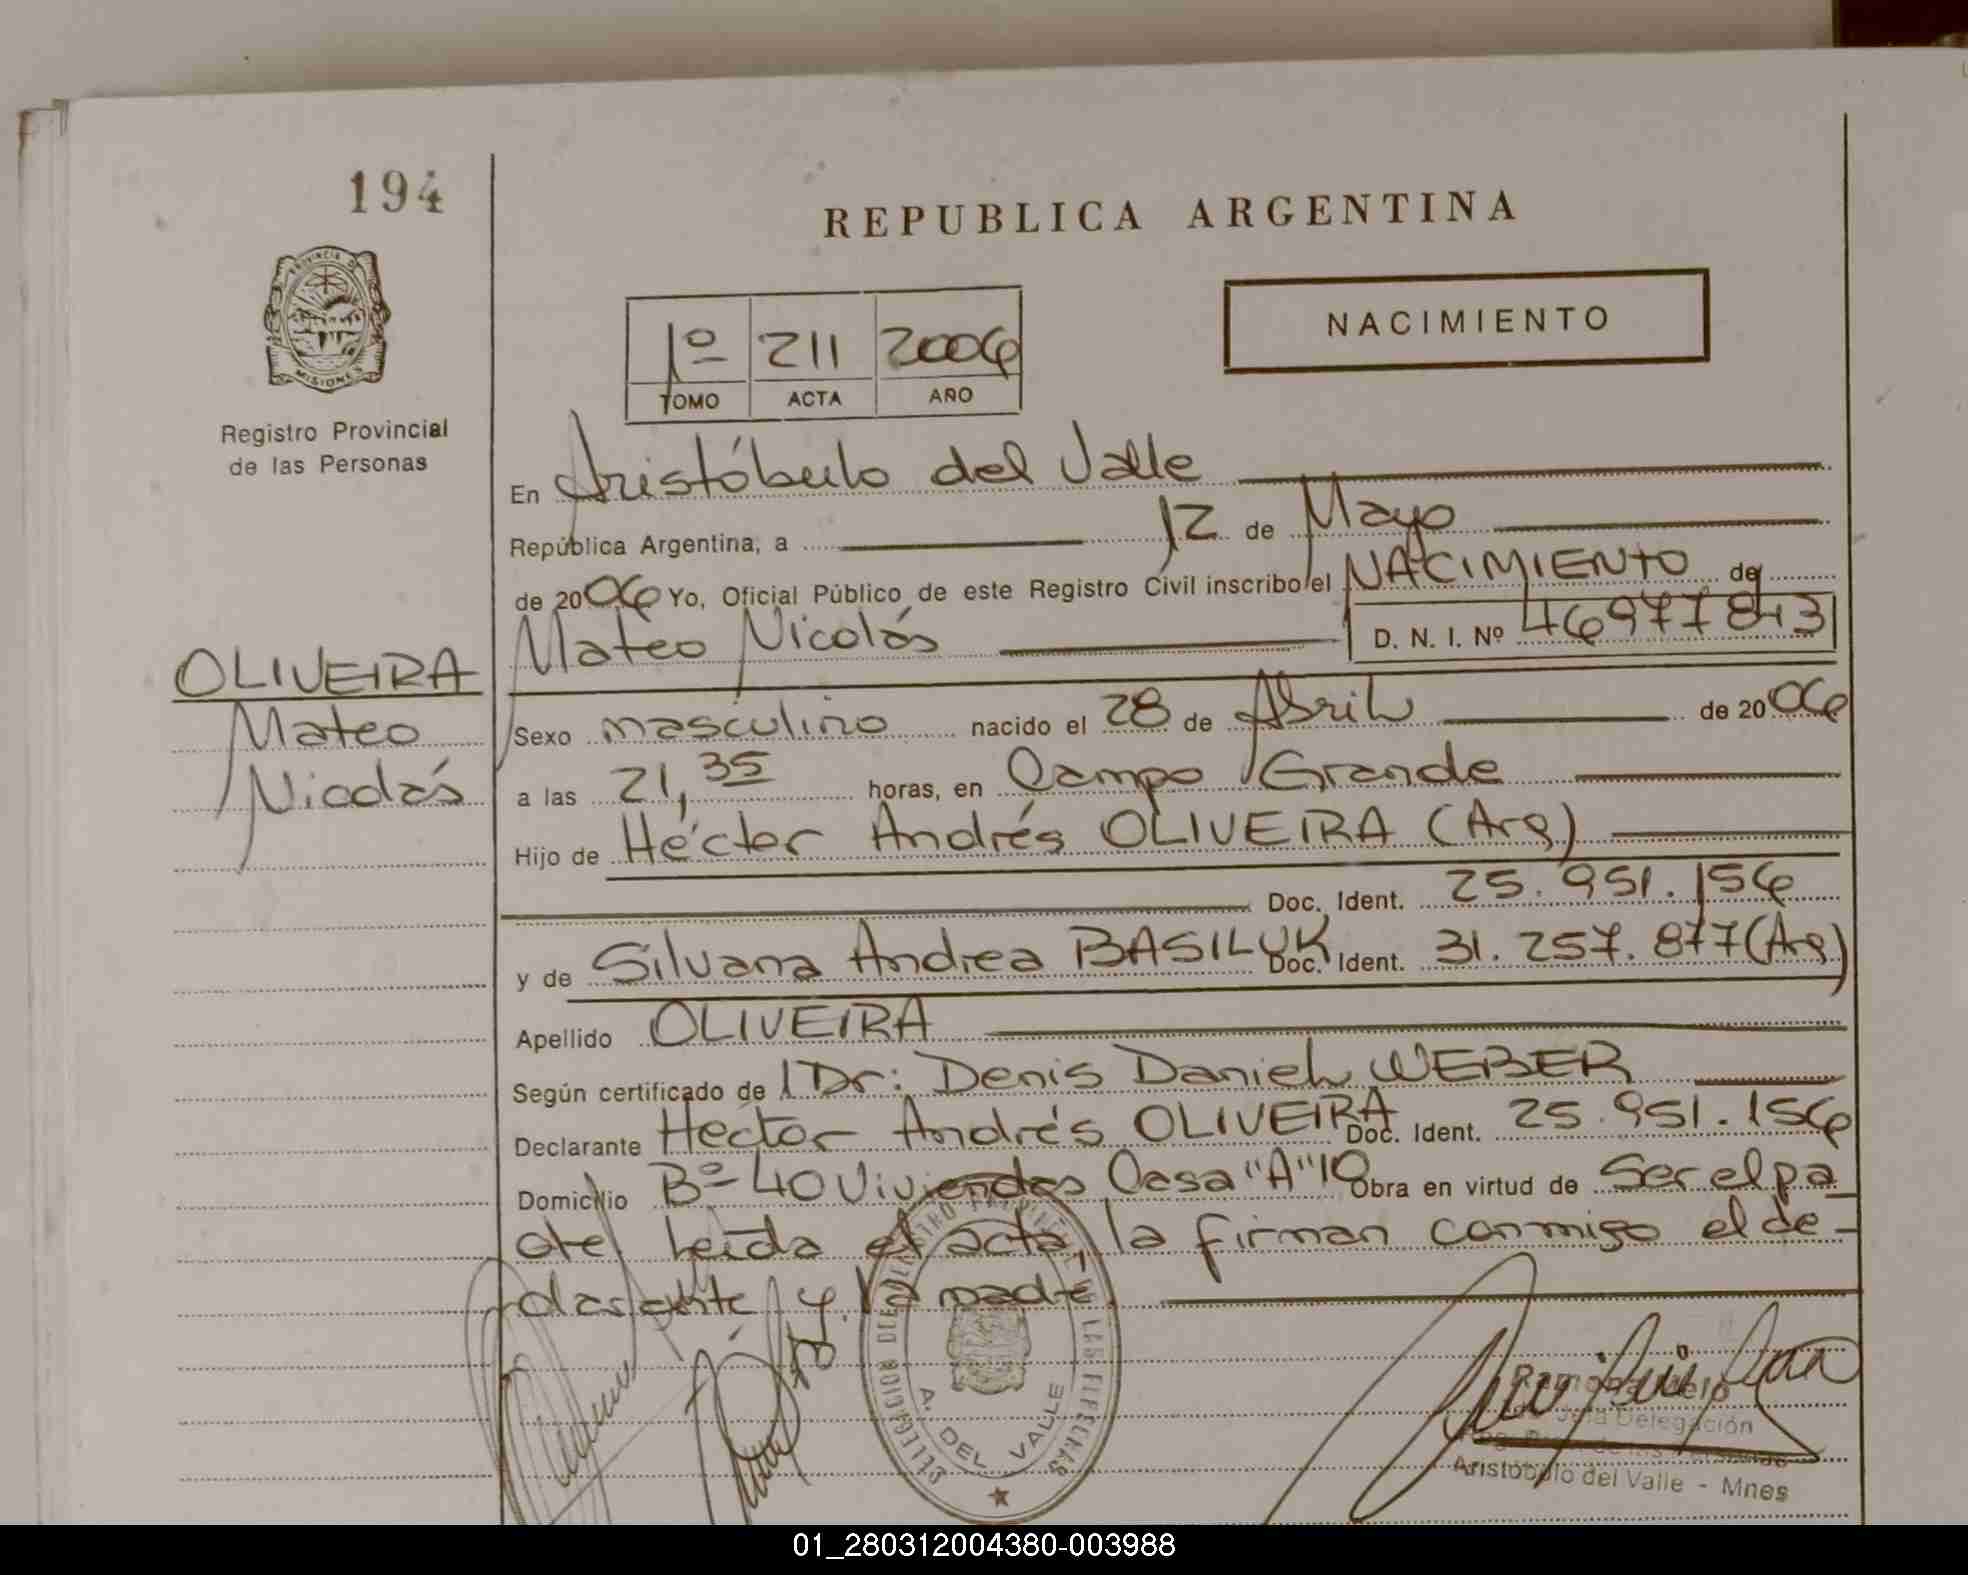 194
REPUBLICA ARGENTINA
PROVINCIA D
MISIONES
Registro Provincial
de las Personas
NACIMIENTO
1º 211 2006
TOMO ACTA AÑO
En Aristóbulo del Valle
República Argentina, a 12 de Mayo
de 2006 Yo, Oficial Público de este Registro Civil inscribo el NACIMIENTO de
Mateo Nicolás D. N. I. Nº 46977843
OLIVEIRA
Mateo
Nicolás
Sexo masculino nacido el 28 de Abril de 2006
a las 21,35 horas, en Campo Grande
Hijo de Héctor Andrés OLIVEIRA (Arg)
Doc. Ident. 25.951.156
y de Silvana Andrea BASILUK Doc. Ident. 31.257.877 (Arg)
Apellido OLIVEIRA
Según certificado de Dr: Denis Daniel WEBER
Declarante Héctor Andrés OLIVEIRA Doc. Ident. 25.951.156
Domicilio Bº 40 Viviendas Casa "A" 10 Obra en virtud de Ser el pa
dre leída el acta, la firman conmigo el de-
clarante y la madre
A. DEL VALLE
Jefa Delegación
Aristóbulo del Valle - Mnes
01_280312004380-003988